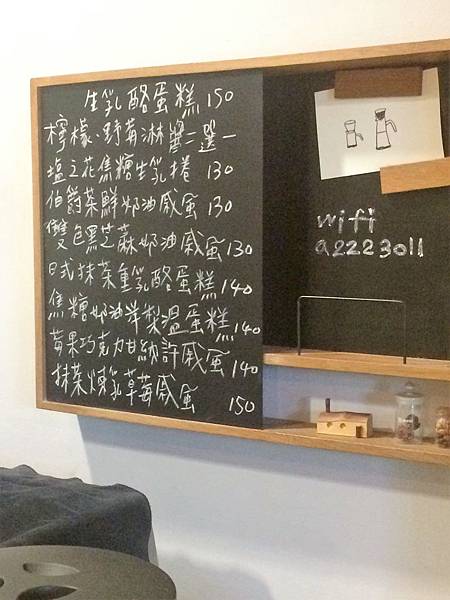 生乳酪蛋糕 150
檸檬、野莓淋醬二選一
塩之花焦糖生乳捲 130
伯爵茶鮮奶油戚風 130
雙色黑芝麻奶油戚風 130
日式抹茶重乳酪蛋糕 140
焦糖奶油洋梨溫蛋糕 140
莓果巧克力甘納許戚風 140
抹茶煉乳草莓戚風 150
wifi
a2223011